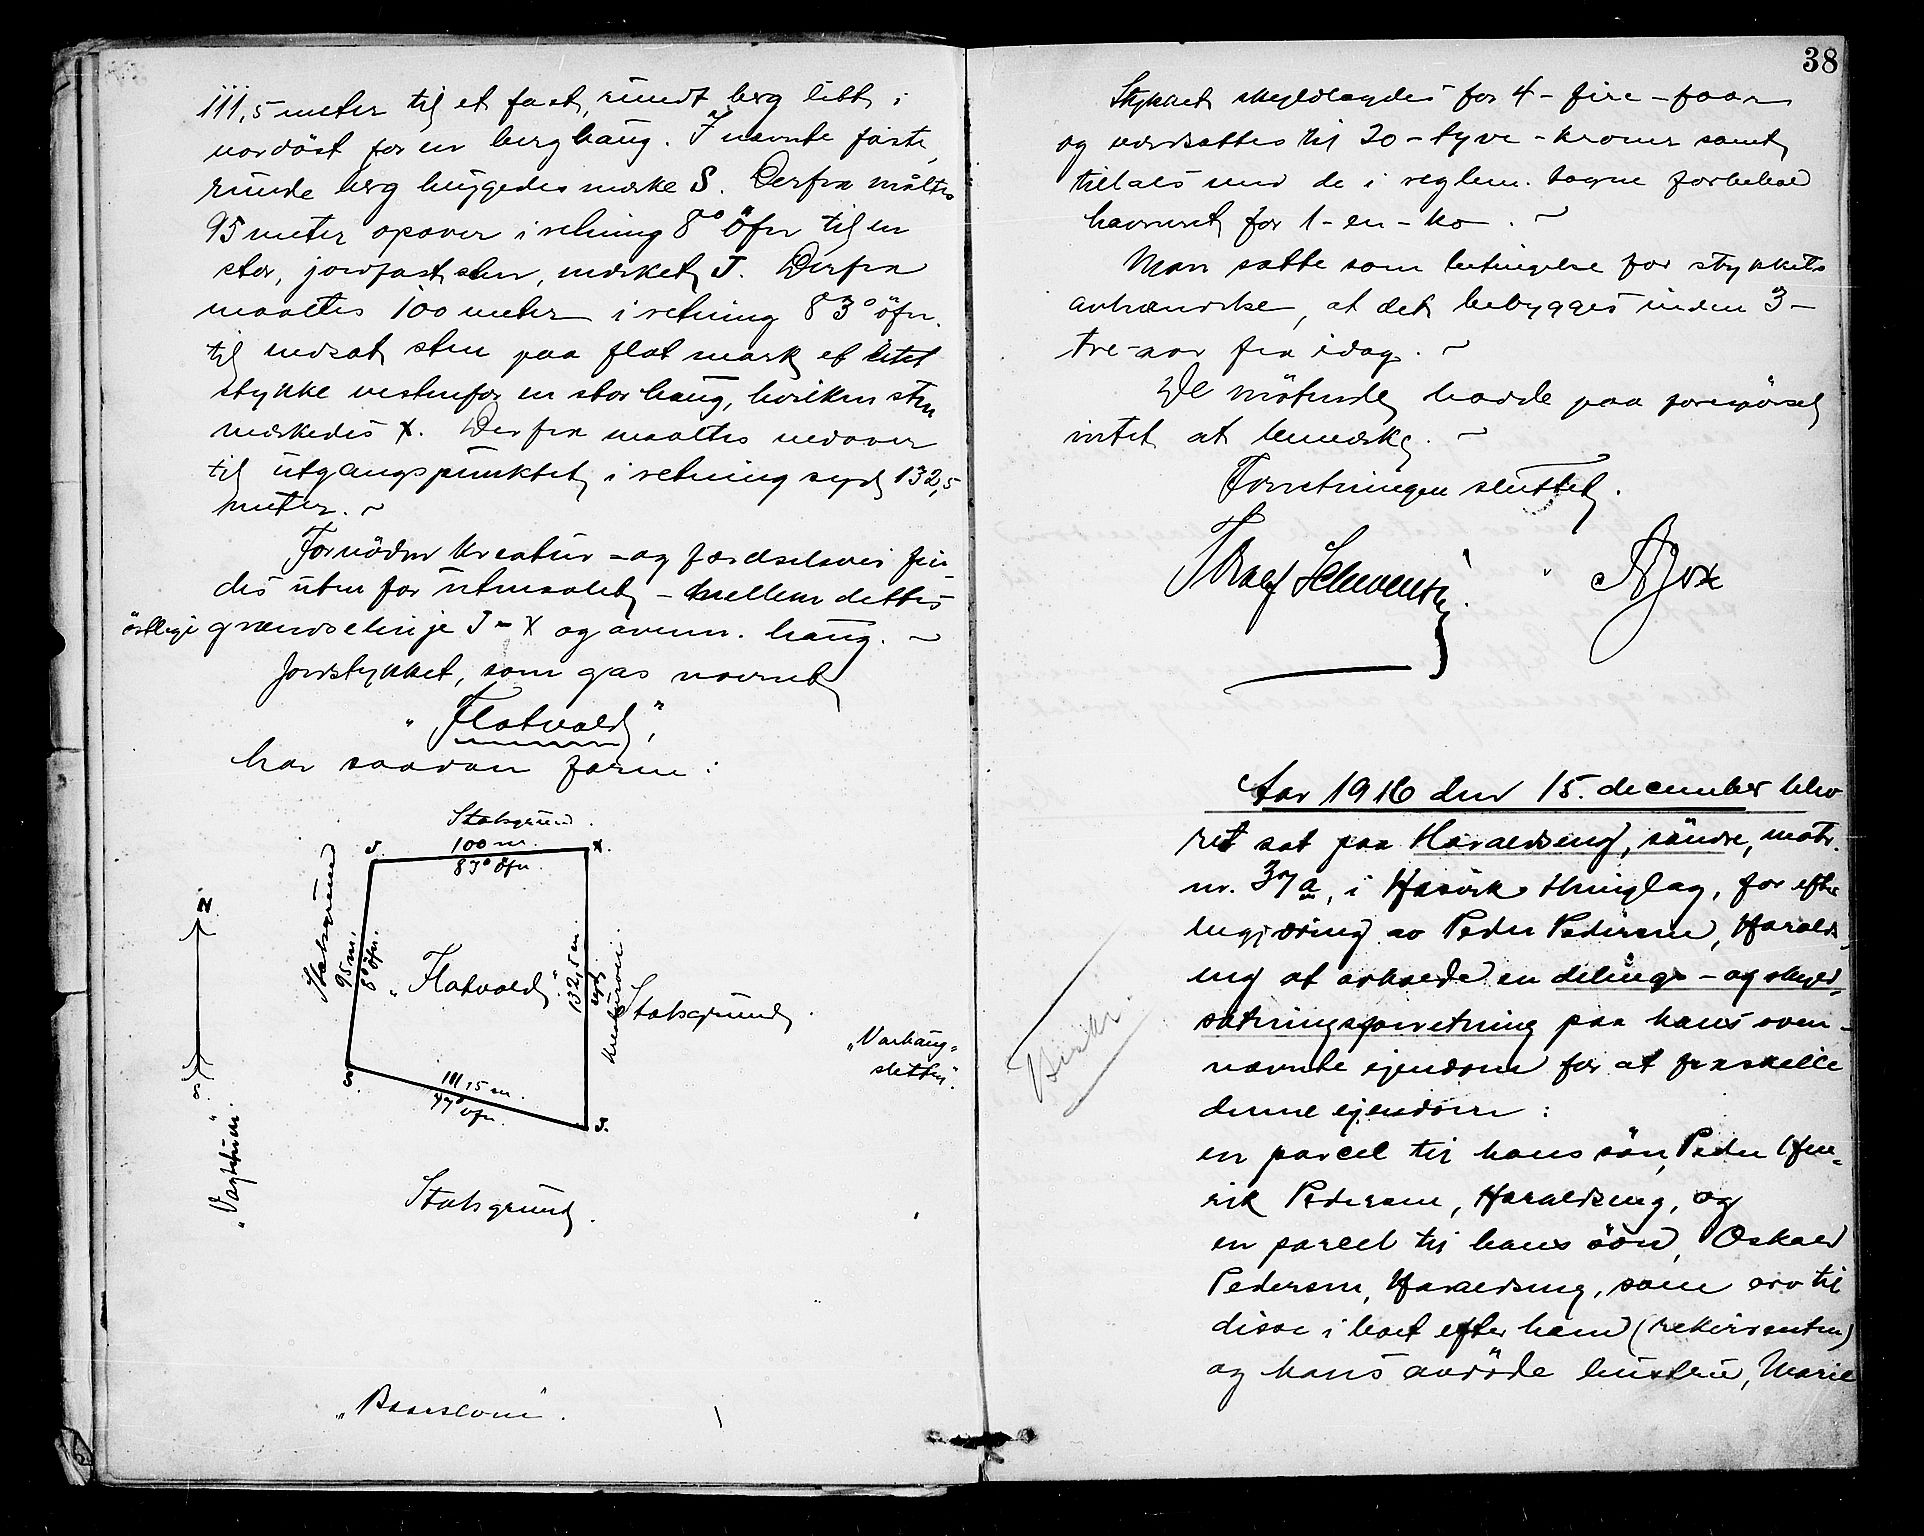 111,5 meter til et fast, rundt berg litt i
nordöst for en berghaug. I nævnte faste,
runde berg huggedes merke S. Derfra måltes
95 meter opover i retning 8° öfn til en
stor, jordfast sten, merket J. Derfra
maaltes 100 meter i retning 83° öfn.
til nedsat sten paa flat mark et litet
stykke vestenfor en stor haug, hvilken sten
merkedes X. Derfra maaltes nedover
til utgangspunktet i retning syd 132,5
meter. ~
Fornöden kreatur- og færdselsvei fin-
des uten for utmaalet - mellem dettes
östlige grændselinje J - X og ovenn. haug. ~
Jordstykket, som gas navnet
"Flatvold",
har saadan form:
Statsgrund.
J. 100 m. X.
83° öfn.
Statsgrund
95 m.
8° öfn.
"Flatvold"
132,5 m
syd
Kreaturvei.
Statsgrund.
N
S
"Varhaug-
sletten".
S
111,5 m.
77° öfn.
J.
"Vagtstuen".
Statsgrund.
38
Stykket skyldlagdes for 4 - fire - öre
og værdsattes til 20 - tyve - kroner samt
tillaes med de i reglem. tagne forbehold
havneret for 1 - en - ko. ~
Man satte som betingelse for stykkets
avhændelse, at det bebygges inden 3 -
tre - aar fra idag. ~
De mötende hadde paa forespörsel
intet at bemerke. ~
Forretningen sluttet.
Aar 1916 den 15. december blev
ret sat paa Haraldseng, söndre, matr.
nr. 37a, i Hasvik thinglag, for efter
begjæring av Peder Pedersen, Haralds-
eng at avholde en delings- og skyld-
sætningsforretning paa hans oven-
nævnte ejendom for at fraskille
denne ejendom:
en parcel til hans sön, Peder Hen-
rik Pedersen, Haraldseng, og
en parcel til hans sön, Oskald
Pedersen, Haraldseng, som arv til
disse i boet efter ham (rekvirenten)
og hans avdöde hustru, Marie